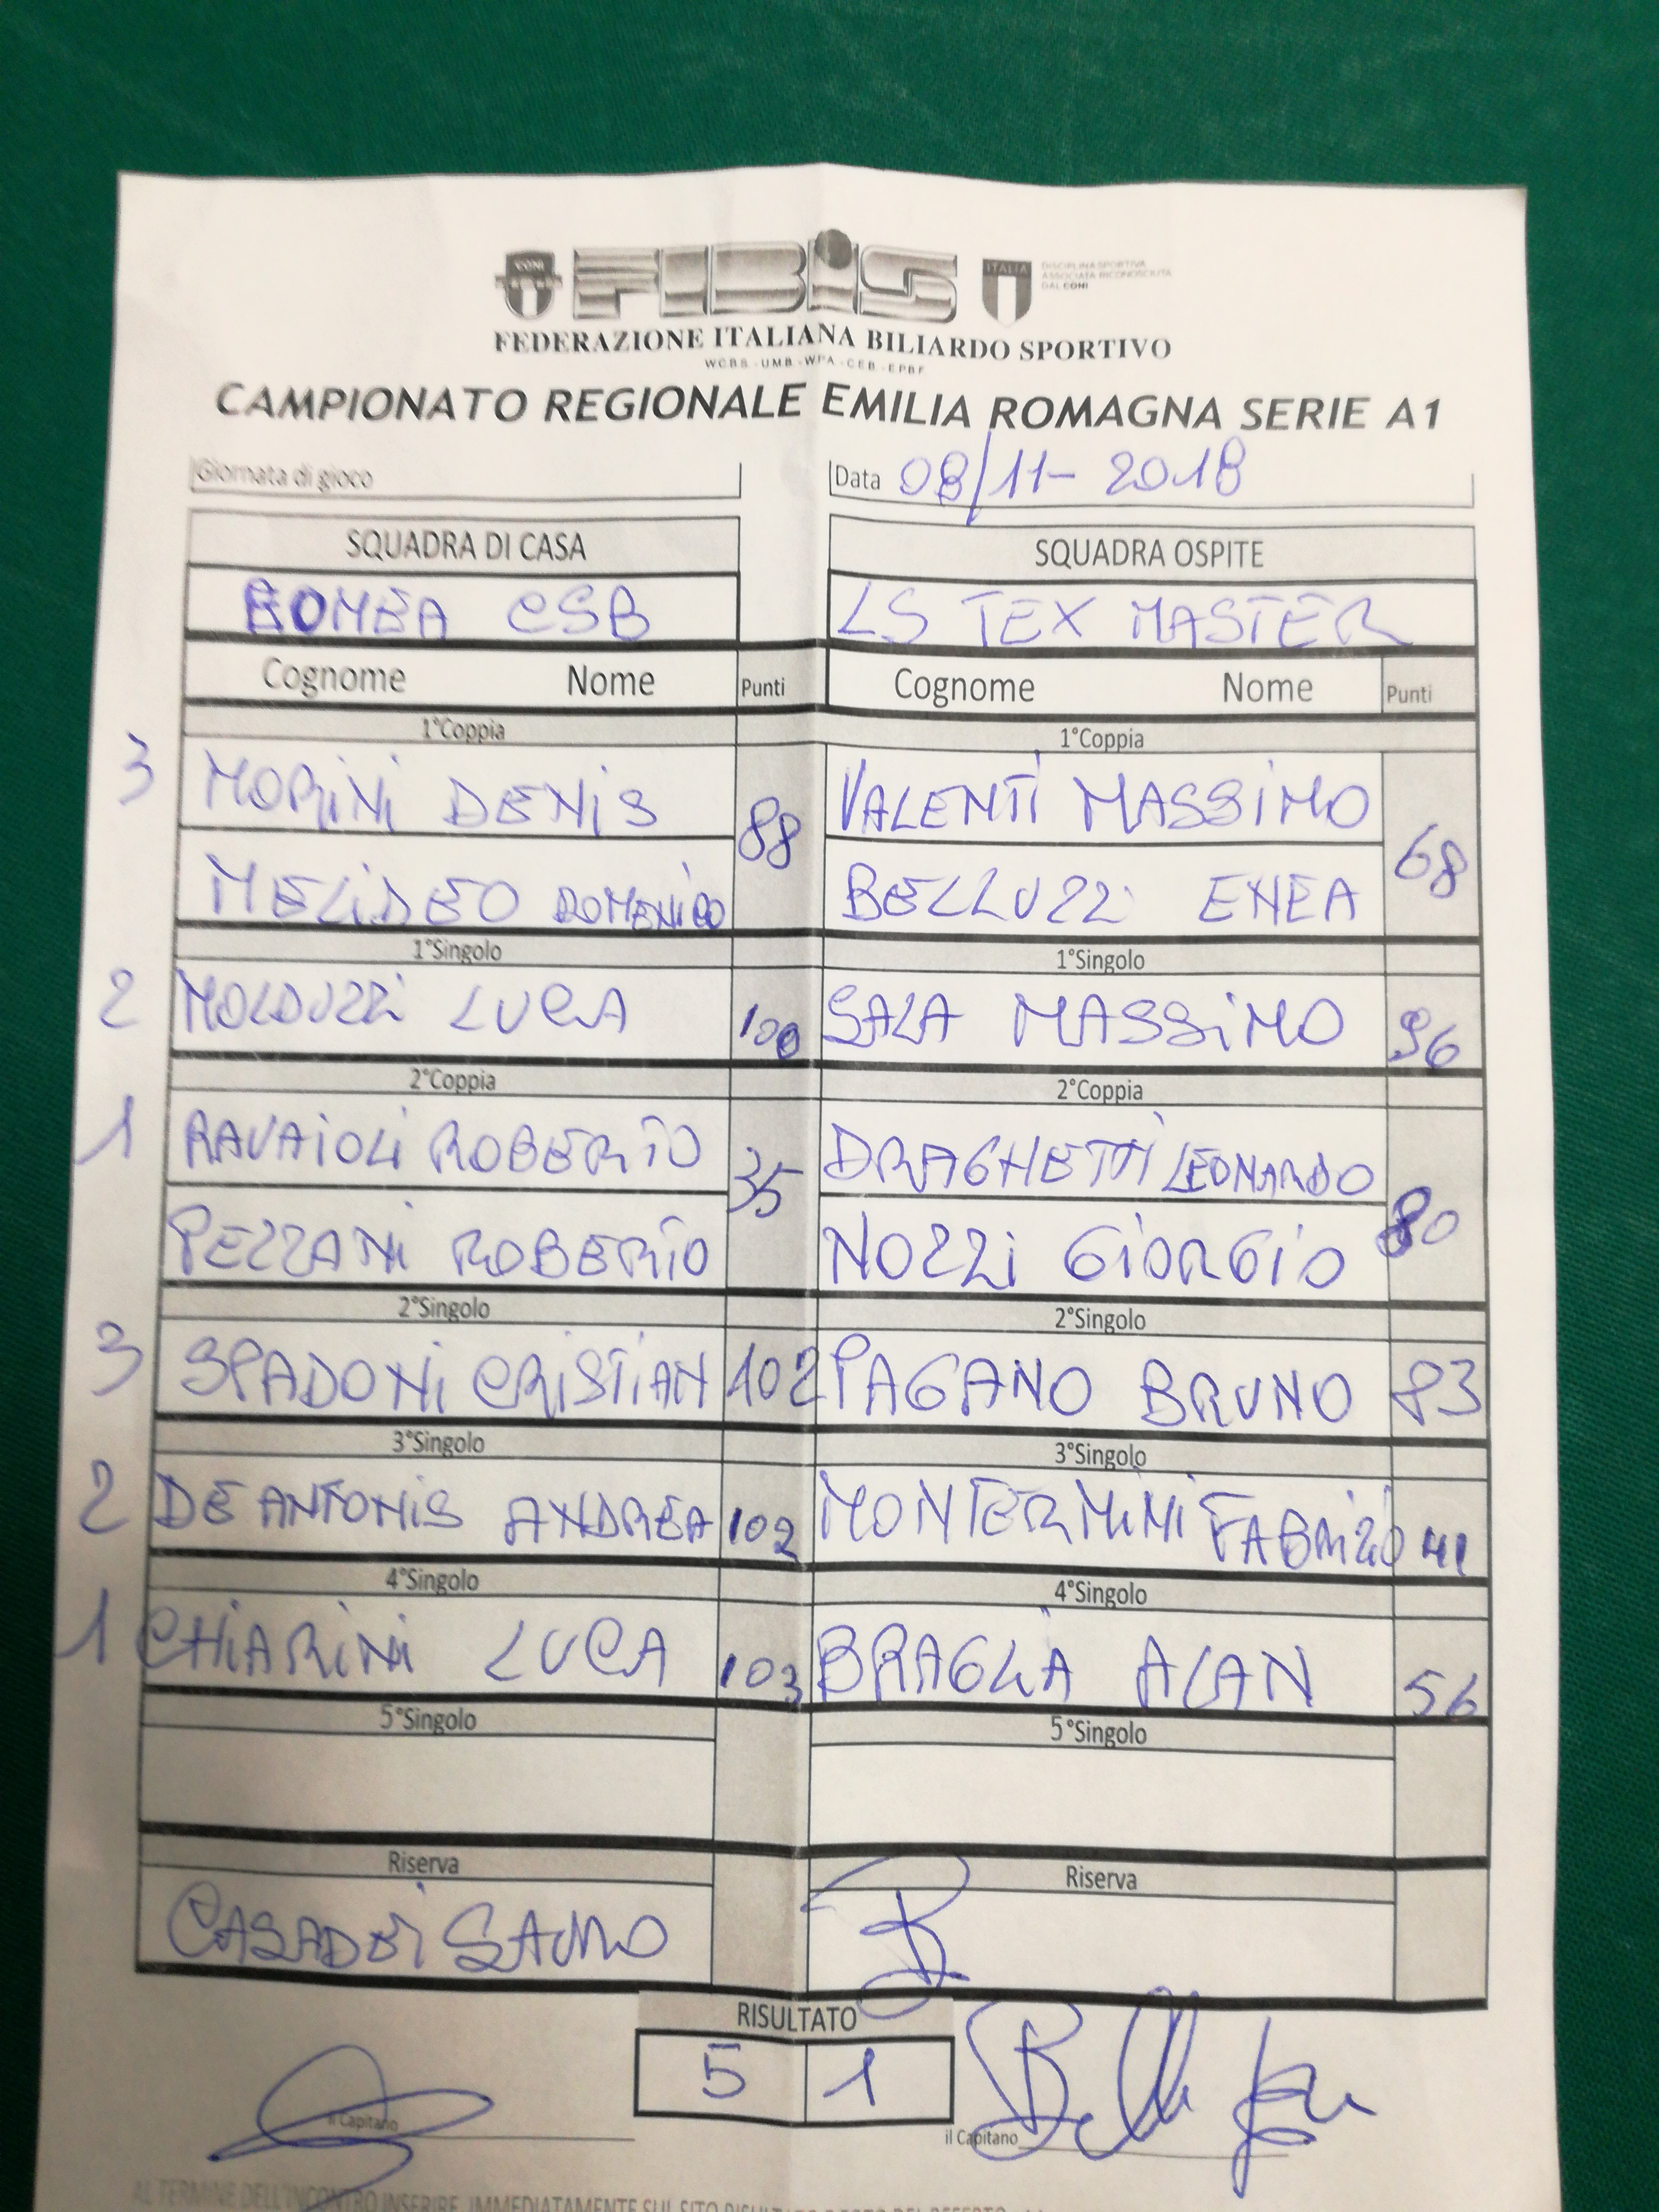 CONI
FIBIS
ITALIA
DISCIPLINA SPORTIVA
ASSOCIATA RICONOSCIUTA
DAL CONI
FEDERAZIONE ITALIANA BILIARDO SPORTIVO
WCBS - UMB - WPA - CEB - EPBF
CAMPIONATO REGIONALE EMILIA ROMAGNA SERIE A1
Giornata di gioco Data 08/11-2018
SQUADRA DI CASA SQUADRA OSPITE
BOMBA CSB LS TEX MASTER
Cognome Nome Punti Cognome Nome Punti
1°Coppia 1°Coppia
3 MORiNi DENiS 88 VALENTi MASSiMO 68
MELiDEO DOMENiCO BELLUZZi ENEA
1°Singolo 1°Singolo
2 MOLDUZZi LUCA 100 SALA MASSiMO 96
2°Coppia 2°Coppia
1 RAVAiOLi ROBERTO 35 DRAGHETTi LEONARDO 80
PEZZANi ROBERTO NOZZi GiORGiO
2°Singolo 2°Singolo
3 SPADONi CRiSTiAN 102 PAGANO BRUNO 83
3°Singolo 3°Singolo
2 DE ANTONiS ANDREA 102 MONTERMiNi FABRiZiO 41
4°Singolo 4°Singolo
1 CHiARiNi LUCA 103 BRAGLiA ALAN 56
5°Singolo 5°Singolo
Riserva Riserva
CASADEi
RISULTATO
5 1
il Capitano il Capitano
AL TERMINE DELL'INCONTRO INSERIRE IMMEDIATAMENTE SUL SITO